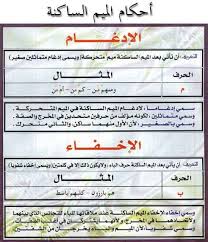 أحكام الميم الساكنة
الإدغام
التعريف: أن تأتي بعد الميم الساكنة ميم متحركة ( ويسمى إدغام متماثلين صغير )
الحرف
المثال
م
ومنهم من - كم من - أم من
وسمي إدغاماً ، لإدغام الميم الساكنة في الميم المتحركة
وسمي متماثلين ، لكونه مؤلف من حرفين متحدين في المخرج والصفة
وسمي بالصغير ، لأن الأول ساكن والثاني متحرك
الإخفاء
التعريف: أن تأتي بعد الميم الساكنة حرف الباء ، ولا يكون ذلك إلا في كلمتين ( ويسمى إخفاء شفوياً )
الحرف
المثال
ب
هم بارزون - كلبهم باسط
وسمي إخفاء لإخفاء الميم الساكنة عند ملاقاتها للباء للتجانس الذي بينهما